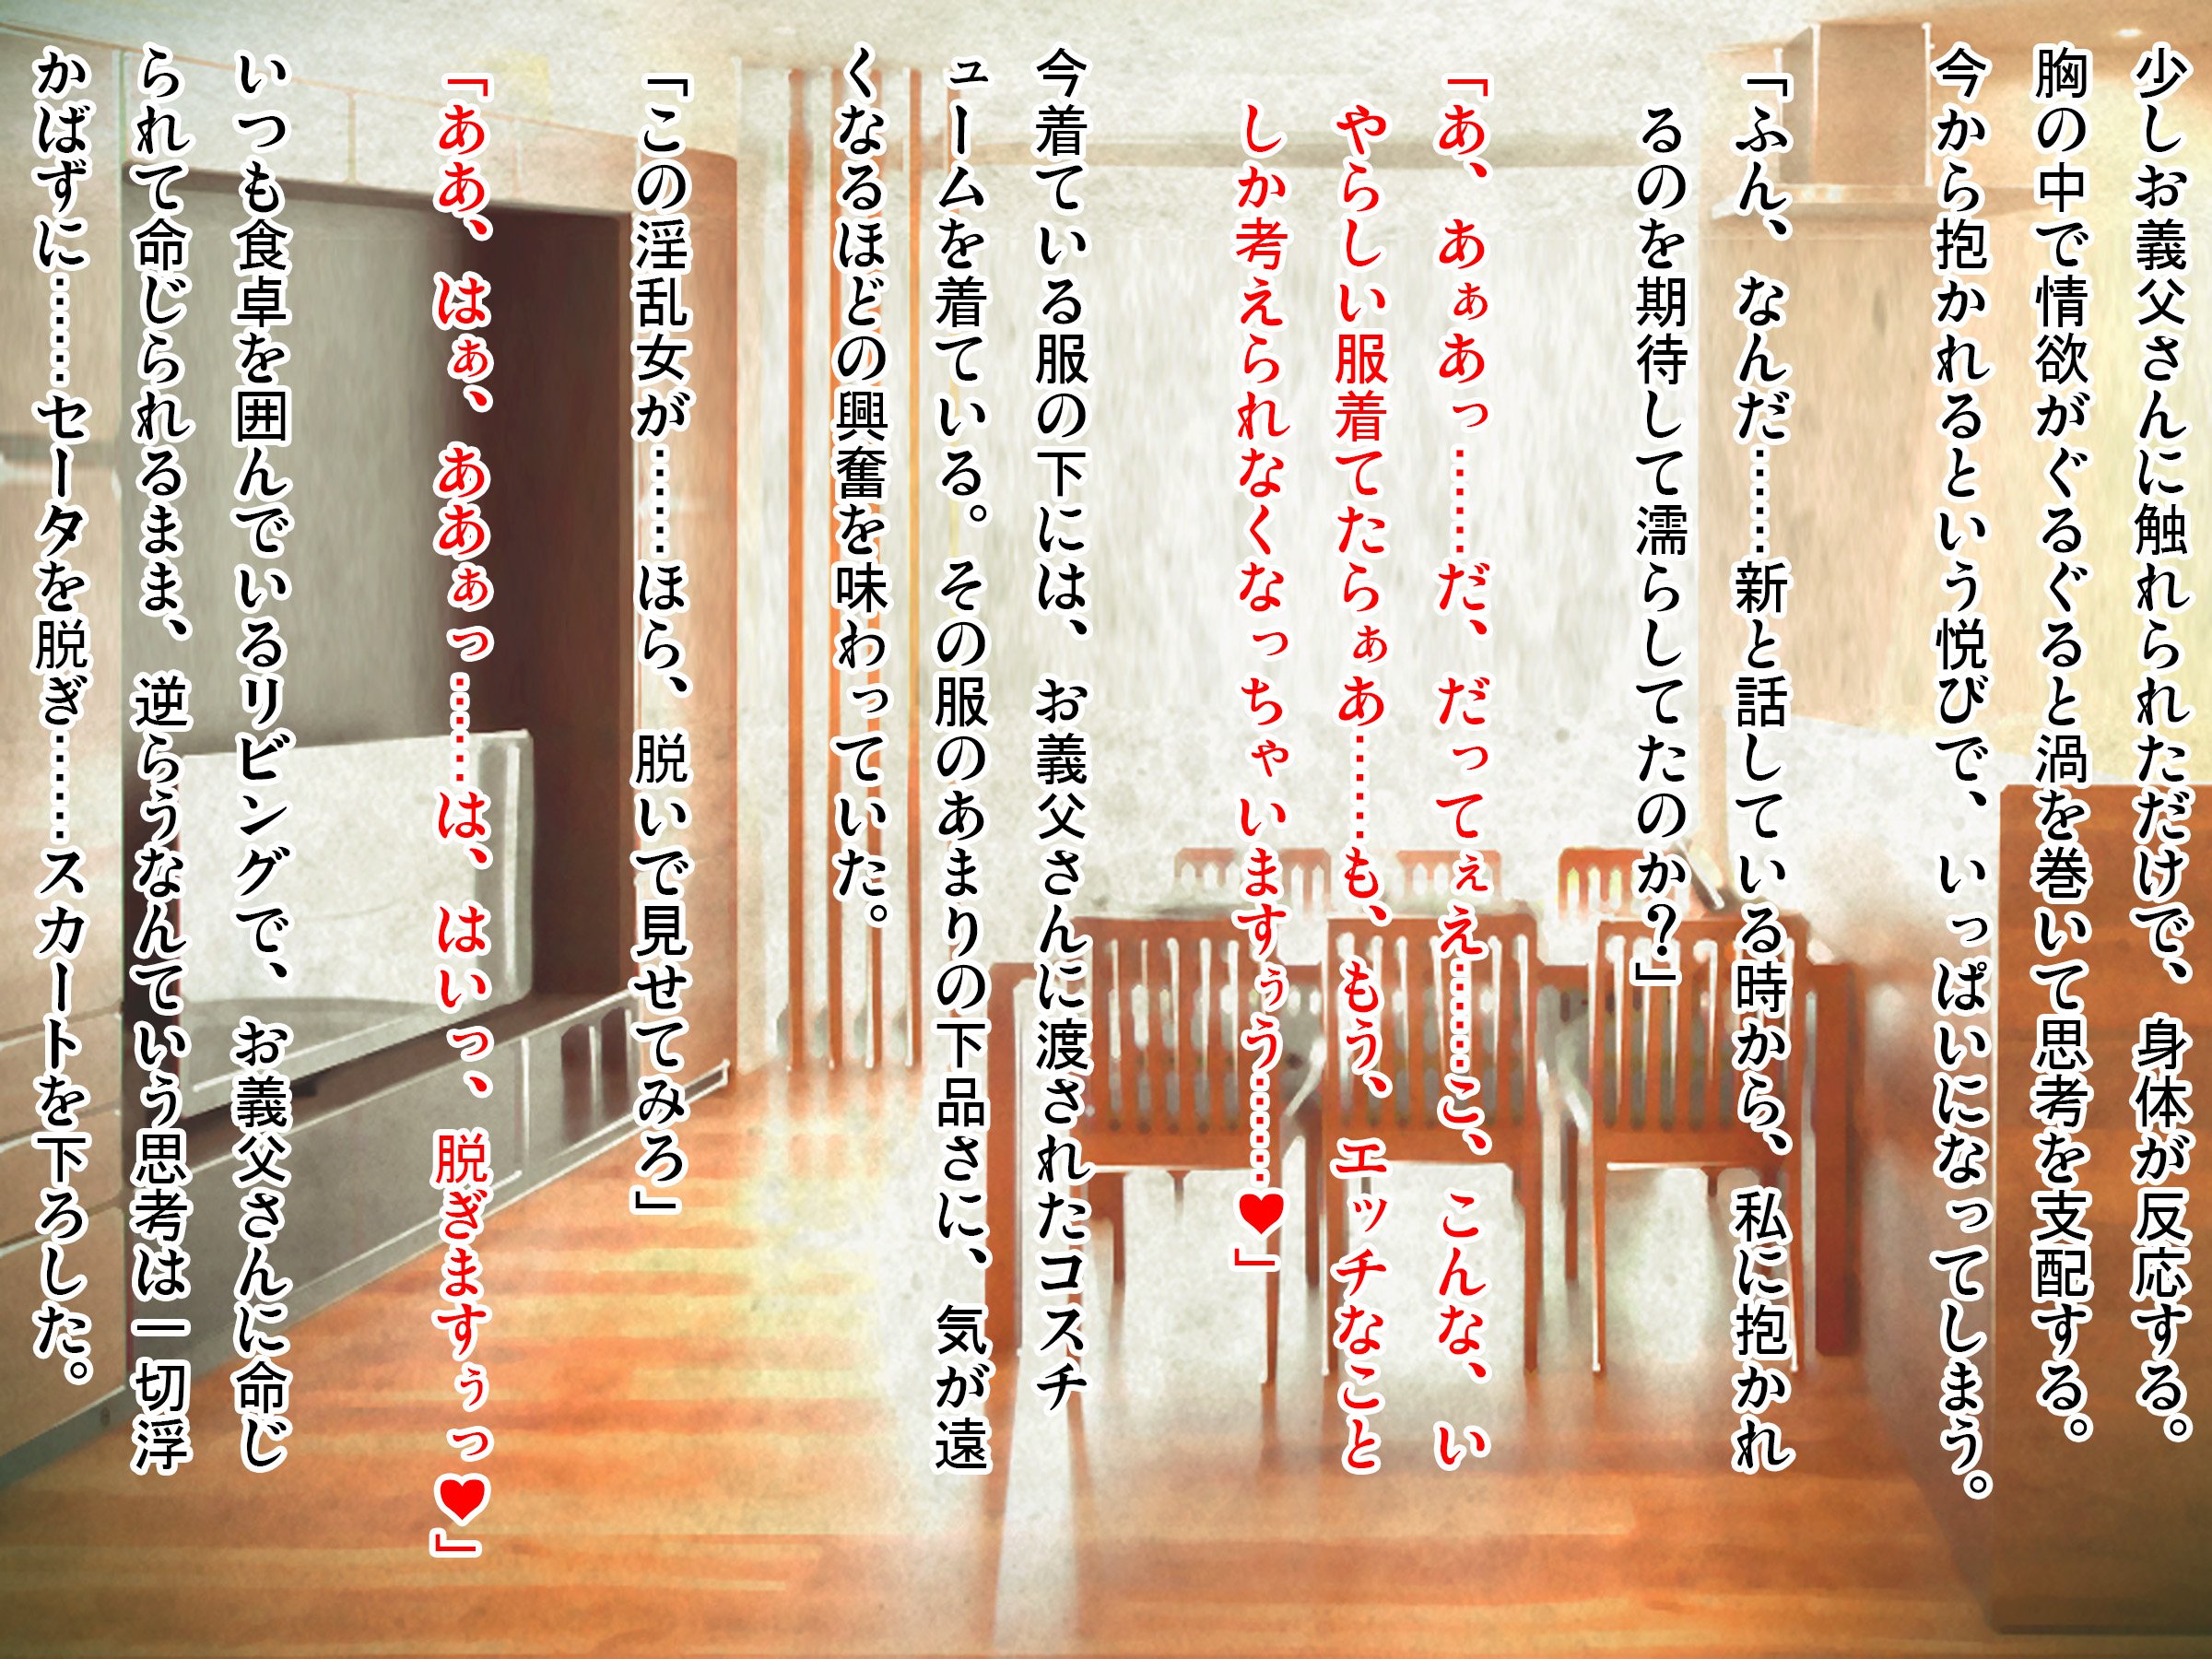 少しお義父さんに触れられただけで、身体が反応する。
胸の中で情欲がぐるぐると渦を巻いて思考を支配する。
今から抱かれるという悦びで、いっぱいになってしまう。
「ふん、なんだ……新と話している時から、私に抱かれ
るのを期待して濡らしてたのか？」
「あ、あぁあっ……だ、だってぇえ……こ、こんな、い
やらしい服着てたらぁあ……も、もう、エッチなこと
しか考えられなくなっちゃいますぅう……♥」
今着ている服の下には、お義父さんに渡されたコスチ
ュームを着ている。その服のあまりの下品さに、気が遠
くなるほどの興奮を味わっていた。
「この淫乱女が……ほら、脱いで見せてみろ」
「ああ、はぁ、ああぁっ……は、はいっ、脱ぎますぅっ♥」
いつも食卓を囲んでいるリビングで、お義父さんに命じ
られて命じられるまま、逆らうなんていう思考は一切浮
かばずに……セータを脱ぎ……スカートを下ろした。